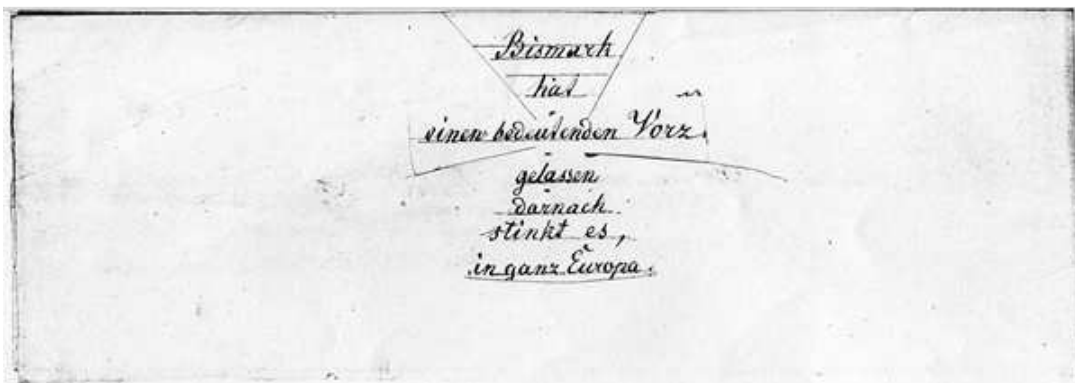 Bismark
hat
einen bedeutenden Vorz.
gelassen
darnach
stinkt es,
in ganz Europa.